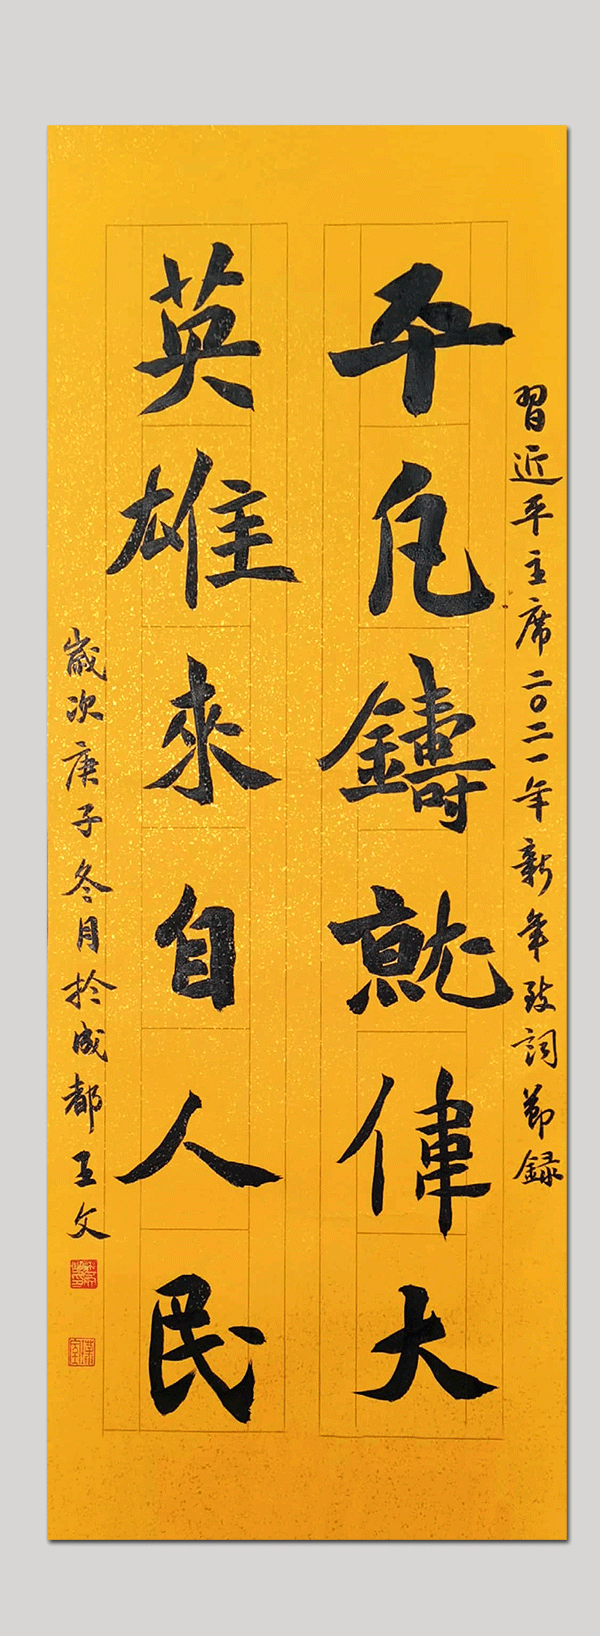 習近平主席二〇二一年新年致詞節録
平凡鑄就偉大
英雄來自人民
歲次庚子冬月於成都王文